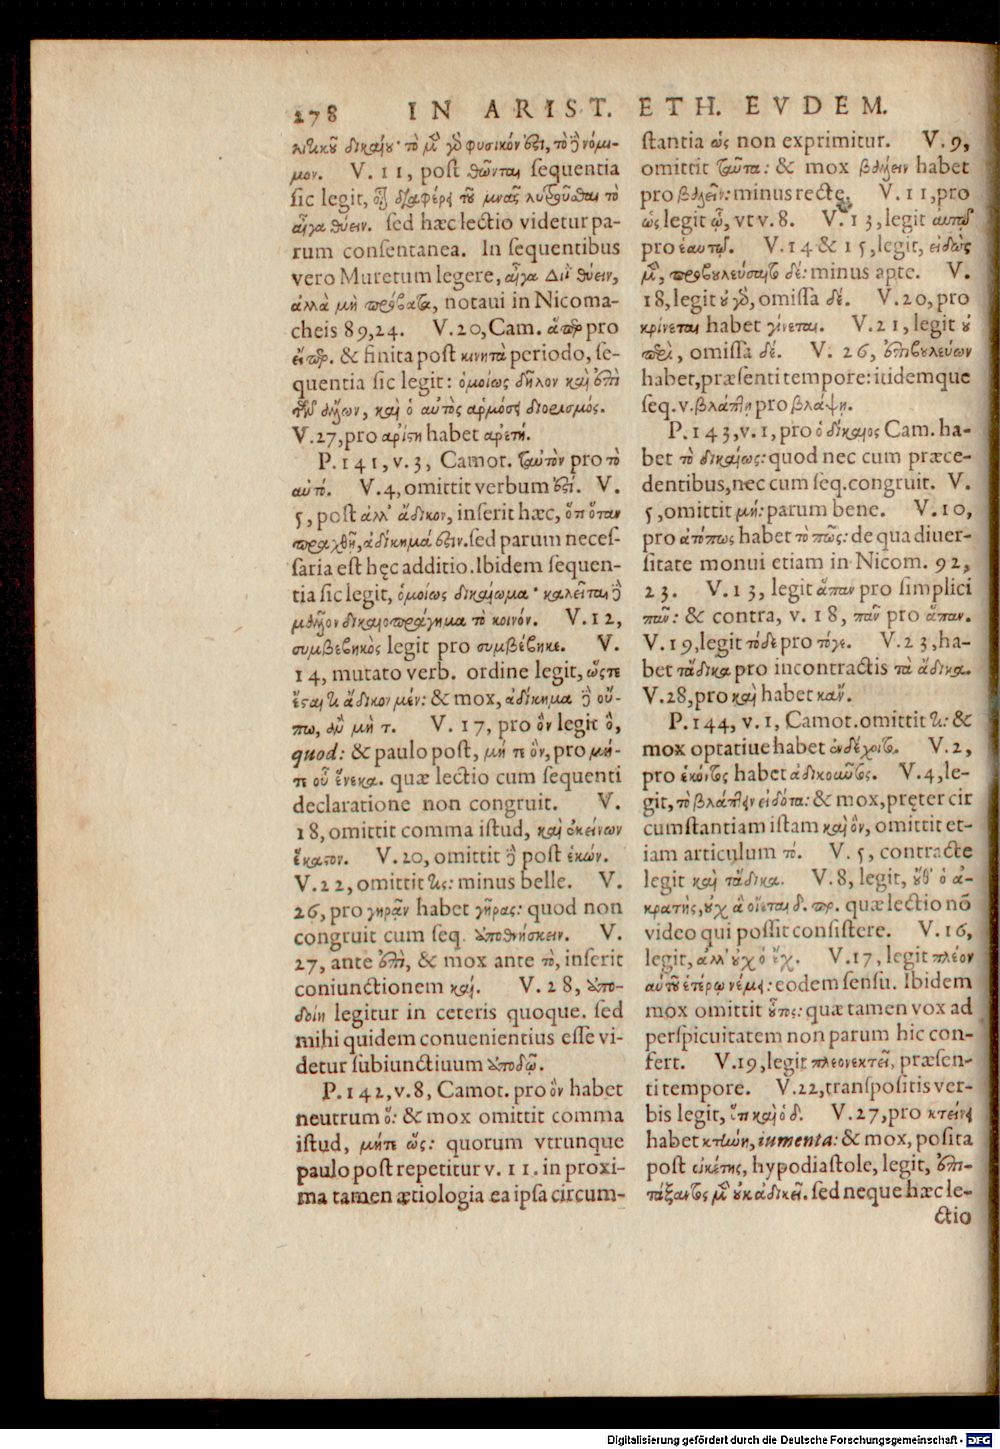 278 IN ARIST. ETH. EVDEM.
λιτικοῦ δικαίου· τὸ μὲν γὰρ φυσικόν ἐστι, τὸ δὲ νόμι-
μον. V. 11, post θῶνται sequentia
sic legit, οἷον διαφέρει τοῦ μνᾶς λυτροῦσθαι τὸ
αἶγα θύειν. sed hæc lectio videtur pa-
rum consentanea. In sequentibus
vero Muretum legere, αἶγα Διὶ θύειν,
ἀλλὰ μὴ πρόβατα, notaui in Nicoma-
cheis 89,24. V.20, Cam. ἅπερ pro
εἴπερ. & finita post κινητὰ periodo, se-
quentia sic legit: ὁμοίως δῆλον καὶ ἐπὶ
τῶν ἄλλων, καὶ ὁ αὐτὸς ἁρμόσει διορισμός.
V.27, pro ἀρίστη habet ἀρετή.
P.141, v.3, Camot. ταὐτὸν pro τὸ
αὐτό. V.4, omittit verbum ἐστί. V.
5, post ἀλλ' ἄδικον, inserit hæc, ὅτι ὅταν
πραχθῇ, ἀδίκημά ἐστιν. sed parum neces-
saria est hęc additio. Ibidem sequen-
tia sic legit, ὁμοίως δικαίωμα· καλεῖται δὲ
μᾶλλον δικαιοπράγημα τὸ κοινόν. V.12,
συμβεβηκὸς legit pro συμβέβηκε. V.
14, mutato verb. ordine legit, ὥστε
ἔσται τι ἄδικον μέν: & mox, ἀδίκημα δὲ οὔ-
πω, ἂν μὴ τ. V. 17, pro ὃν legit ὃ,
quod: & paulo post, μή τε ὃν, pro μή-
τε οὗ ἕνεκα. quæ lectio cum sequenti
declaratione non congruit. V.
18, omittit comma istud, καὶ ἐκείνων
ἕκαστον. V.20, omittit δὲ post ἑκών.
V.22, omittit τις: minus belle. V.
26, pro γηρᾷν habet γῆρας: quod non
congruit cum seq. ἀποθνήσκειν. V.
27, ante ἐπὶ, & mox ante τὸ, inserit
coniunctionem καί. V.28, ἀπο-
δοίη legitur in ceteris quoque. sed
mihi quidem conuenientius esse vi-
detur subiunctiuum ἀποδῷ.
P.142, v.8, Camot. pro ὃν habet
neutrum ὅ: & mox omittit comma
istud, μήτε ὥς: quorum vtrunque
paulo post repetitur v. 11. in proxi-
ma tamen ætiologia ea ipsa circum-
stantia ὡς non exprimitur. V.9,
omittit ταῦτα: & mox βάλλειν habet
pro βαλεῖν: minus recte. V.11, pro
ὡς legit ᾧ, vt v. 8. V.13, legit αὐτῷ
pro ἑαυτῷ. V.14 & 15, legit, εἰδὼς
μὲν, προβουλεύσαντος δέ: minus apte. V.
18, legit οὐ γὰρ, omissa δέ. V.20, pro
κρίνεται habet γίνεται. V.21, legit οὐ
περὶ, omissa δέ. V. 26, ἐπιβουλεύων
habet, præsenti tempore: itidemque
seq. v. βλάπτῃ pro βλάψῃ.
P.143, v.1, pro ὁ δίκαιος Cam. ha-
bet τὸ δικαίως: quod nec cum præce-
dentibus, nec cum seq. congruit. V.
5, omittit μή: parum bene. V.10,
pro ἀτόπως habet τὸ πῶς: de qua diuer-
sitate monui etiam in Nicom. 92,
23. V.13, legit ἅπαν pro simplici
πᾶν: & contra, v. 18, πᾶν pro ἅπαν.
V.19, legit τόδε pro τόγε. V.23, ha-
bet τἄδικα pro incontractis τὰ ἄδικα.
V.28, pro καὶ habet κἄν.
P.144, v.1, Camot. omittit τι: &
mox optatiue habet ἐνδέχοιτο. V.2,
pro ἑκόντος habet ἀδικοῦντος. V.4, le-
git, τὸ βλάπτειν εἰδότα: & mox, pręter cir
cumstantiam istam καὶ ὃν, omittit et-
iam articulum τό. V. 5, contracte
legit καὶ τἄδικα. V.8, legit, οὔθ' ὁ ἀ-
κρατὴς, οὐχ ἃ οἴεται δ. πρ. quæ lectio nō
video qui possit consistere. V.16,
legit, ἀλλ' οὐχ ὁ ἔχ. V.17, legit πλέον
αὑτοῦ ἑτέρῳ νέμει: eodem sensu. Ibidem
mox omittit οὗτος: quæ tamen vox ad
perspicuitatem non parum hic con-
fert. V.19, legit πλεονεκτεῖ, præsen-
ti tempore. V.22, transpositis ver-
bis legit, ἔτι καὶ ὁ δ. V.27, pro κτείνει
habet κτήνη, iumenta: & mox, posita
post οἰκέτης, hypodiastole, legit, ἐπι-
τάξαντος μὲν οὐκ ἀδικεῖ. sed neque hæc le-
ctio
Digitalisierung gefördert durch die Deutsche Forschungsgemeinschaft - DFG